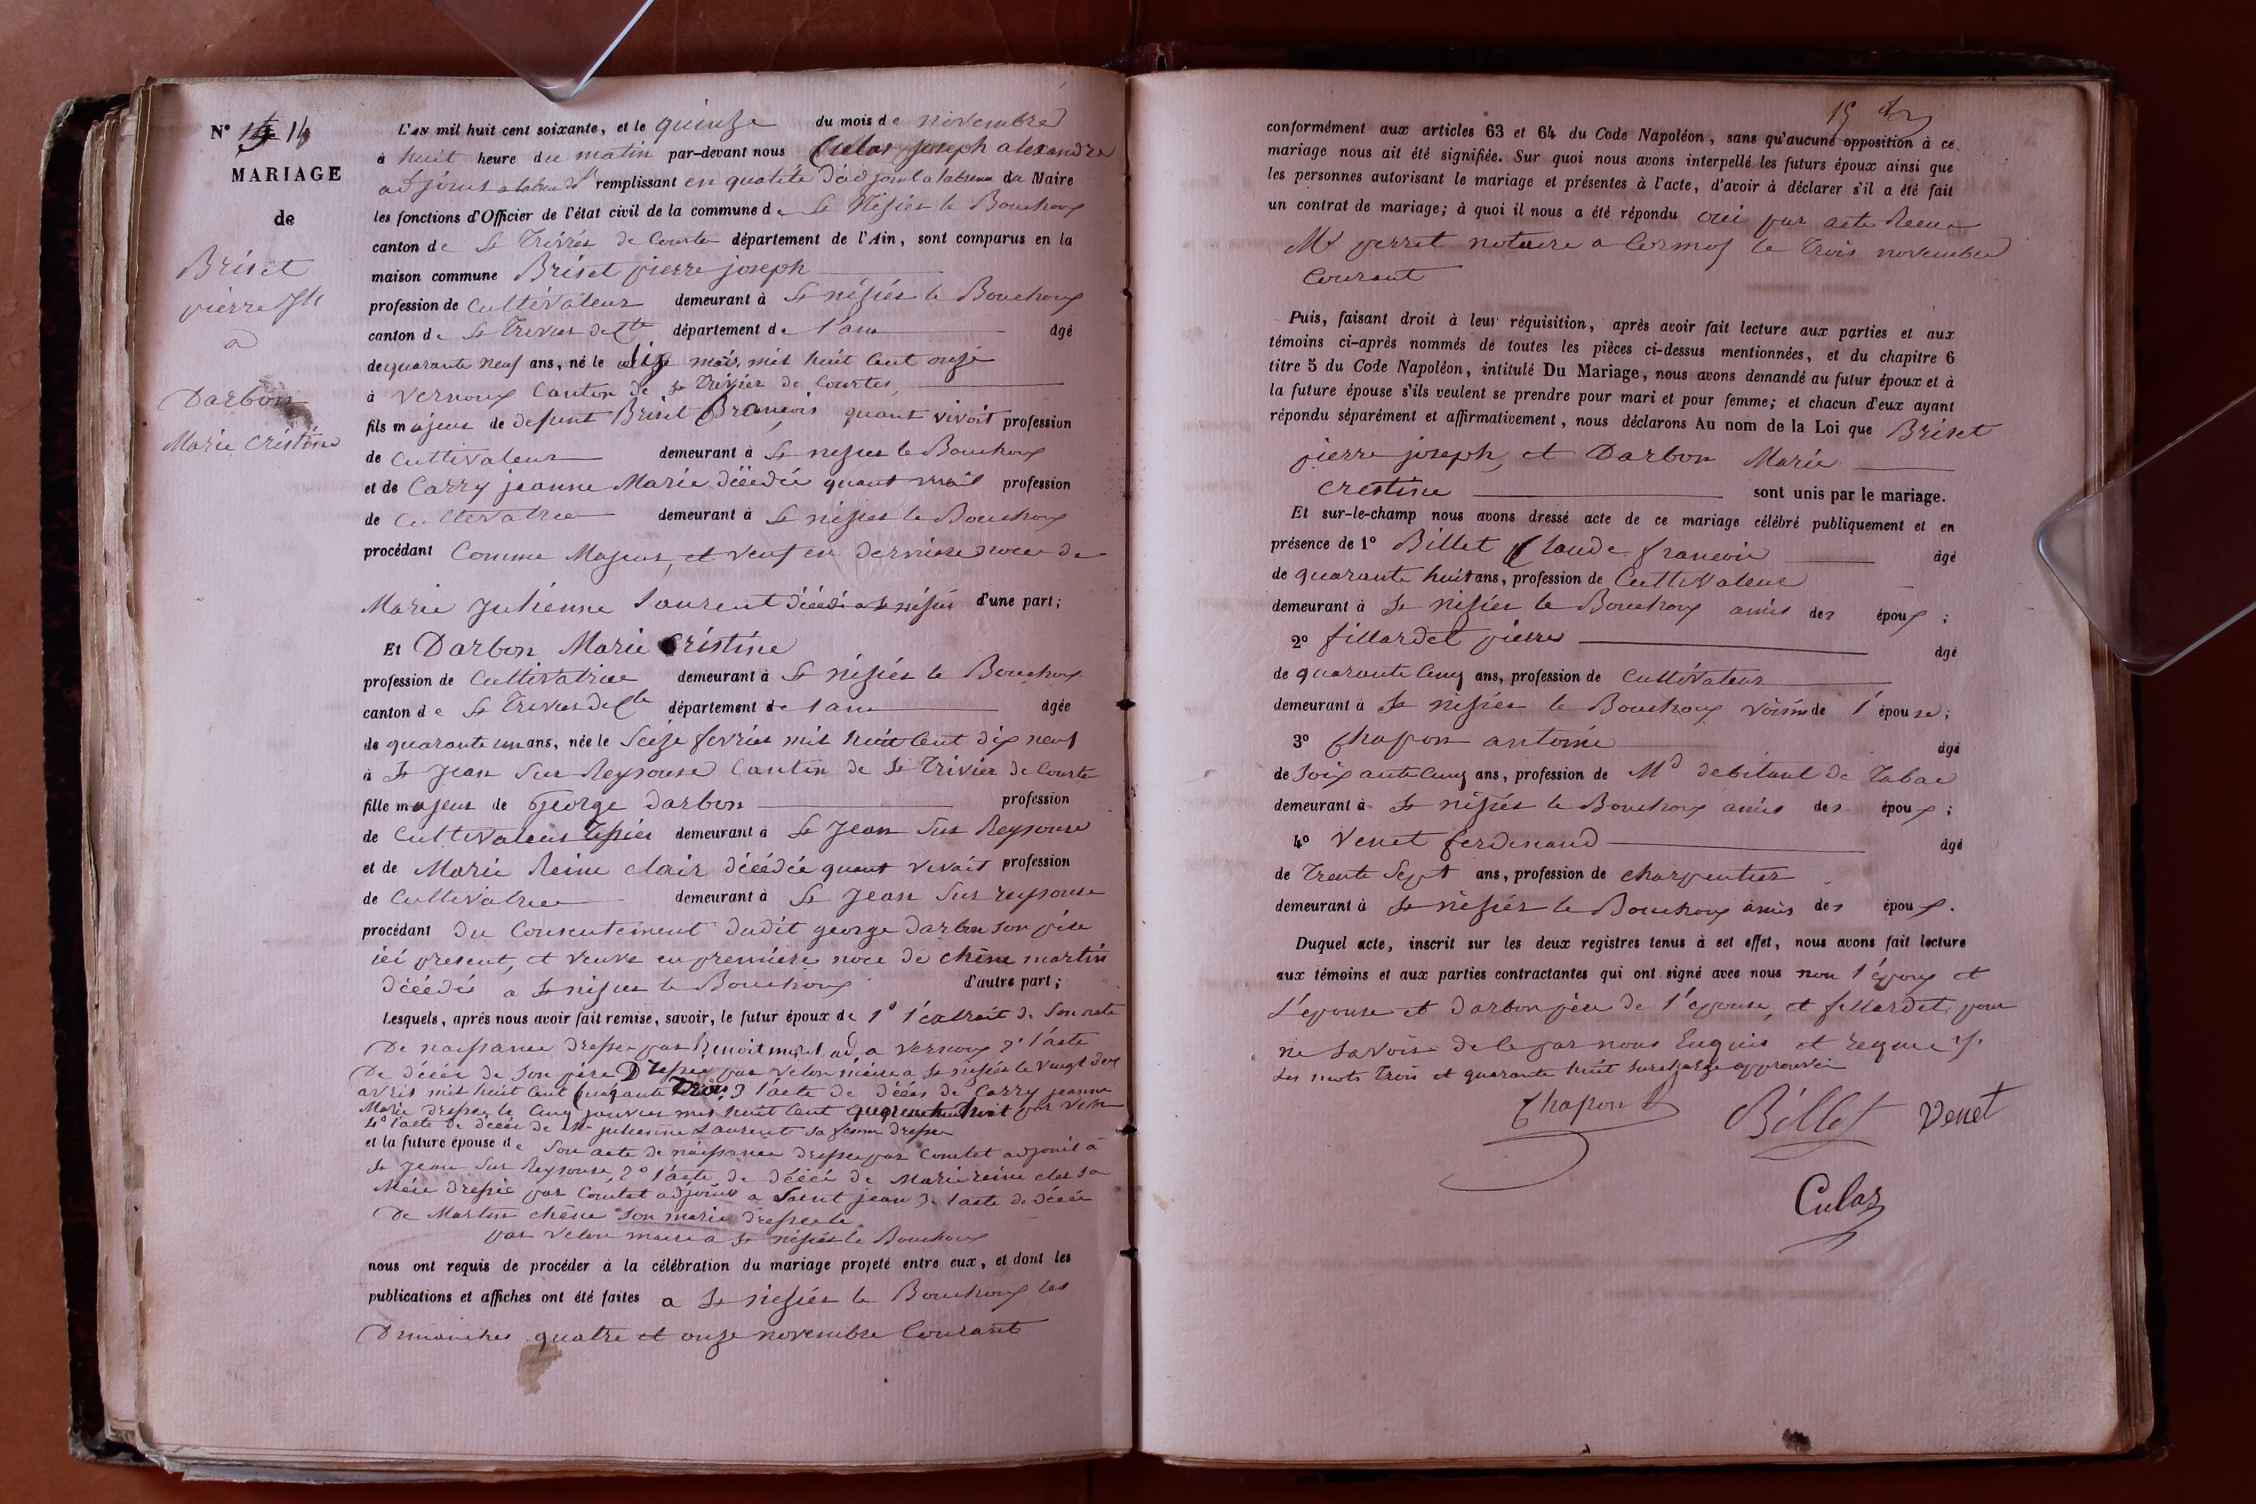 N° 14
MARIAGE
de
Briset
pierre Jh
a
Darbon
Marie Cristine
L'AN mil huit cent soixante, et le quinze du mois de novembre
à huit heure du matin par-devant nous Culas joseph alexandre
adjoint remplissant en qualité d'adjoint du Maire
les fonctions d'Officier de l'état civil de la commune de St Nisiés le Bouchoux
canton de St Triviés de Courtes département de l'Ain, sont comparus en la
maison commune Briset pierre joseph
profession de Cultivateur demeurant à St nisiés le Bouchoux
canton de St Trivier de Cte département de l'ain âgé
de quarante neuf ans, né le mars mil huit cent onze
à Vernoux Canton de St Trivier de Courtes
fils majeur de defunt Briset Francois quant vivoit profession
de Cultivateur demeurant à St nisies le Bouchoux
et de Carry jeanne Marie décédée quant vivait profession
de Cultivatrice demeurant à St nisies le Bouchoux
procédant Comme Majeur, et veuf en derniere noce de
Marie Julienne Laurent décédé a St nisiés d'une part;
Et Darbon Marie Cristine
profession de Cultivatrice demeurant à St nisiés le Bouchoux
canton de St Trivier de Cte département de l'ain âgée
de quarante un ans, née le Seize fevrier mil huit Cent dix neuf
à St Jean Sur Reysouse Canton de St Trivier de Courte
fille majeur de George Darbon profession
de Cultivateur demeurant à St Jean Sur Reysouse
et de Marie Reine clair décédée quant vivait profession
de Cultivatrice demeurant à St Jean Sur reysouse
procédant du Consentement dudit george darbon son père
ici present, et veuve en première noce de chêne martin
décédé a St nisies le Bouchoux d'autre part;
Lesquels, après nous avoir fait remise, savoir, le futur époux de 1° l'extrait de Son acte
De naissance dressé par Benoit adj a Vernoux 2° l'acte
De décés de Son père Dressé par Velon maire a St nisiés le Vingt deux
avril mil huit Cent quarante trois 3 l'acte de décés de Carry jeanne
Marie dressé le Cinq janvier mil huit Cent quarante huit par Velon
4° l'acte de décés de Julienne Laurent Sa femme dressé
et la future épouse de Son acte de naissance dressé par Comtet adjoint à
St Jean Sur Reysouse, 2° l'acte de décés de Marie reine clair Sa
Mère dressé par Comtet adjoint a Saint jean 3 l'acte de décés
De Martin chêne Son marie dressé le
par Velon maire a St nisiés le Bouchoux
nous ont requis de procéder à la célébration du mariage projeté entre eux, et dont les
publications et affiches ont été faites a St nisiés le Bouchoux les
Dimanches quatre et onze novembre Courant
15
conformément aux articles 63 et 64 du Code Napoléon, sans qu'aucune opposition à ce
mariage nous ait été signifiée. Sur quoi nous avons interpellé les futurs époux ainsi que
les personnes autorisant le mariage et présentes à l'acte, d'avoir à déclarer s'il a été fait
un contrat de mariage; à quoi il nous a été répondu oui par acte Recu
Mt perret notaire a Cormoz le Trois novembre
Courant
Puis, faisant droit à leur réquisition, après avoir fait lecture aux parties et aux
témoins ci-après nommés de toutes les pièces ci-dessus mentionnées, et du chapitre 6
titre 5 du Code Napoléon, intitulé Du Mariage, nous avons demandé au futur époux et à
la future épouse s'ils veulent se prendre pour mari et pour femme; et chacun d'eux ayant
répondu séparément et affirmativement, nous déclarons Au nom de la Loi que Briset
pierre joseph, et Darbon Marie
Crestine sont unis par le mariage.
Et sur-le-champ nous avons dressé acte de ce mariage célébré publiquement et en
présence de 1° Billet Claude francois âgé
de quarante huit ans, profession de Cultivateur
demeurant à St nisiés le Bouchoux amis des époux ;
2° fillardet pierre âgé
de quarante Cinq ans, profession de Cultivateur
demeurant à St nisiés le Bouchoux voisin de l'épouse;
3° Chapon antoine âgé
de Soixante Cinq ans, profession de Md debitant de Tabac
demeurant à St nisiés le Bouchoux amis des époux ;
4° Venet ferdinand âgé
de Trente Sept ans, profession de charpentier
demeurant à St nisiés le Bouchoux amis des époux.
Duquel acte, inscrit sur les deux registres tenus à cet effet, nous avons fait lecture
aux témoins et aux parties contractantes qui ont signé avec nous non l'époux et
L'epouse et Darbon père de l'epouse, et fillardet pour
ne Savoir de le par nous Enquis et requis
Les mots Trois et quarante huit Surchargé approuvés
Chapon
Billet
Venet
Culas